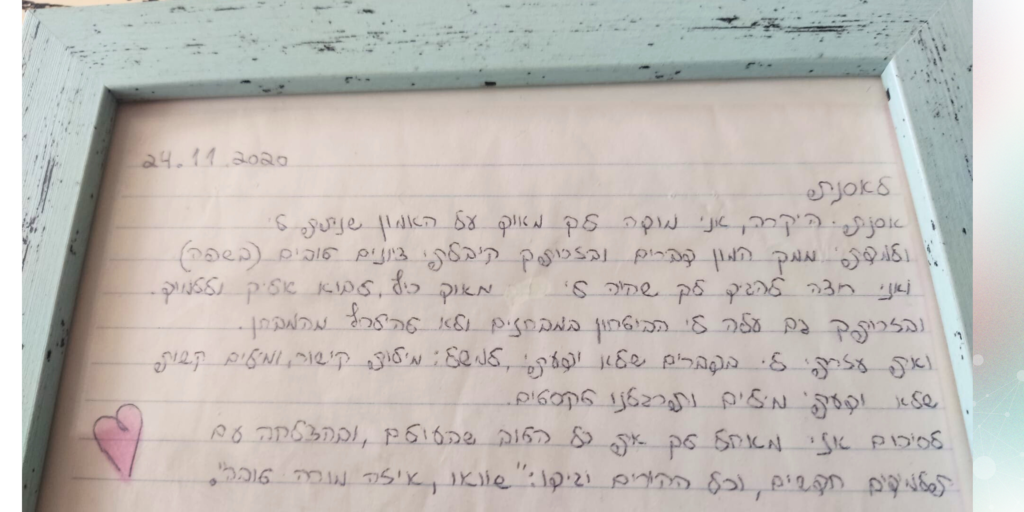 24.11.2020
לאסנת
אסנת היקרה, אני מודה לך מאוד על האמון שנתת לי
ולמדתי ממך המון דברים ובזכותך קיבלתי ציונים טובים (בשפה)
ואני רוצה להגיד לך שהיה לי מאוד כיף לבוא אליך וללמוד.
ובזכותך גם עלה לי הביטחון במבחנים ולא להיבהל מהמבחן.
ואת עזרת לי בדברים שלא ידעתי, למשל: מילות קישור, ומילים קשות
שלא ידעתי מילים ותרגלנו טקסטים.
לסיכום אני מאחל לך את כל הטוב שבעולם, ובהצלחה עם
תלמידים חדשים, וכל ההורים יגידו: "שוואו, איזה מורה טובה".